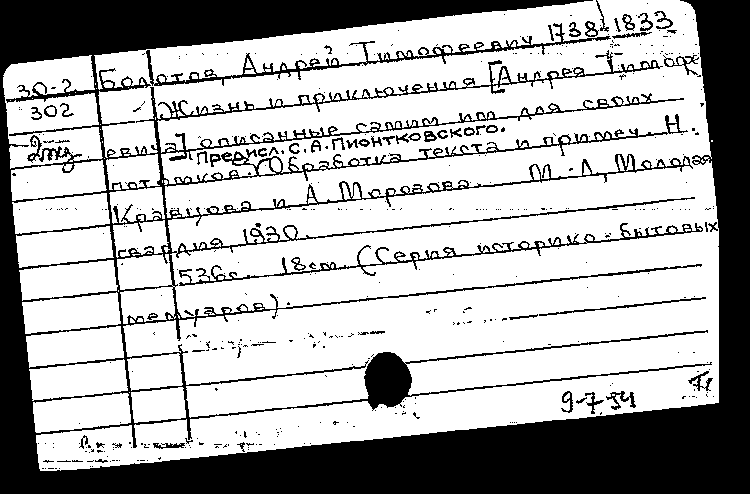 30-2 Болотов, Андрей Тимофеевич, 1738-1833
302 Жизнь и приключения [Андрея Тимофе
евича] описанные самим им для своих
Предисл. С.А. Пионтковского.
потомков. Обработка текста и примеч. Н.
Кравцова и А. Морозова. М.-Л, Молодая
гвардия, 1930.
536с. 18см. (Серия историко-бытовых
мемуаров).
9-7-34